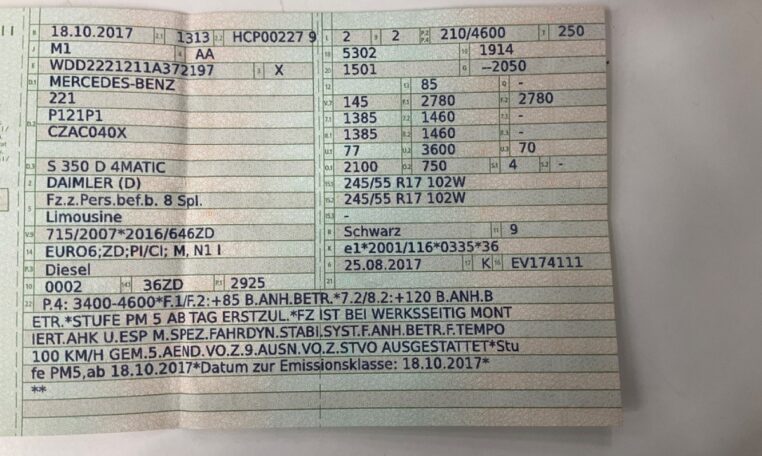 B 18.10.2017 2.1 1313 2.2 HCP00227 9
J M1 4 AA
E WDD2221211A372197 3 X
D.1 MERCEDES-BENZ
221
D.2 P121P1
CZAC040X
D.3 S 350 D 4MATIC
2 DAIMLER (D)
5 Fz.z.Pers.bef.b. 8 Spl.
Limousine
V.9 715/2007*2016/646ZD
14 EURO6;ZD;PI/CI; M, N1 I
P.3 Diesel
10 0002 14.1 36ZD P.1 2925
L 2 9 2 P.2 P.4 210/4600 T 250
18 5302 19 1914
20 1501 G --2050
12 13 85 Q -
V.7 145 F.1 2780 F.2 2780
7.1 1385 7.2 1460 7.3 -
8.1 1385 8.2 1460 8.3 -
U.1 77 U.2 3600 U.3 70
O.1 2100 O.2 750 S.1 4 S.2 -
15.1 245/55 R17 102W
15.2 245/55 R17 102W
15.3 -
R Schwarz 11 9
K e1*2001/116*0335*36
6 25.08.2017 17 K 16 EV174111
21
22 P.4: 3400-4600*F.1/F.2:+85 B.ANH.BETR.*7.2/8.2:+120 B.ANH.B
ETR.*STUFE PM 5 AB TAG ERSTZUL.*FZ IST BEI WERKSSEITIG MONT
IERT.AHK U.ESP M.SPEZ.FAHRDYN.STABI.SYST.F.ANH.BETR.F.TEMPO
100 KM/H GEM.5.AEND.VO.Z.9.AUSN.VO.Z.STVO AUSGESTATTET*Stu
fe PM5,ab 18.10.2017*Datum zur Emissionsklasse: 18.10.2017*
**